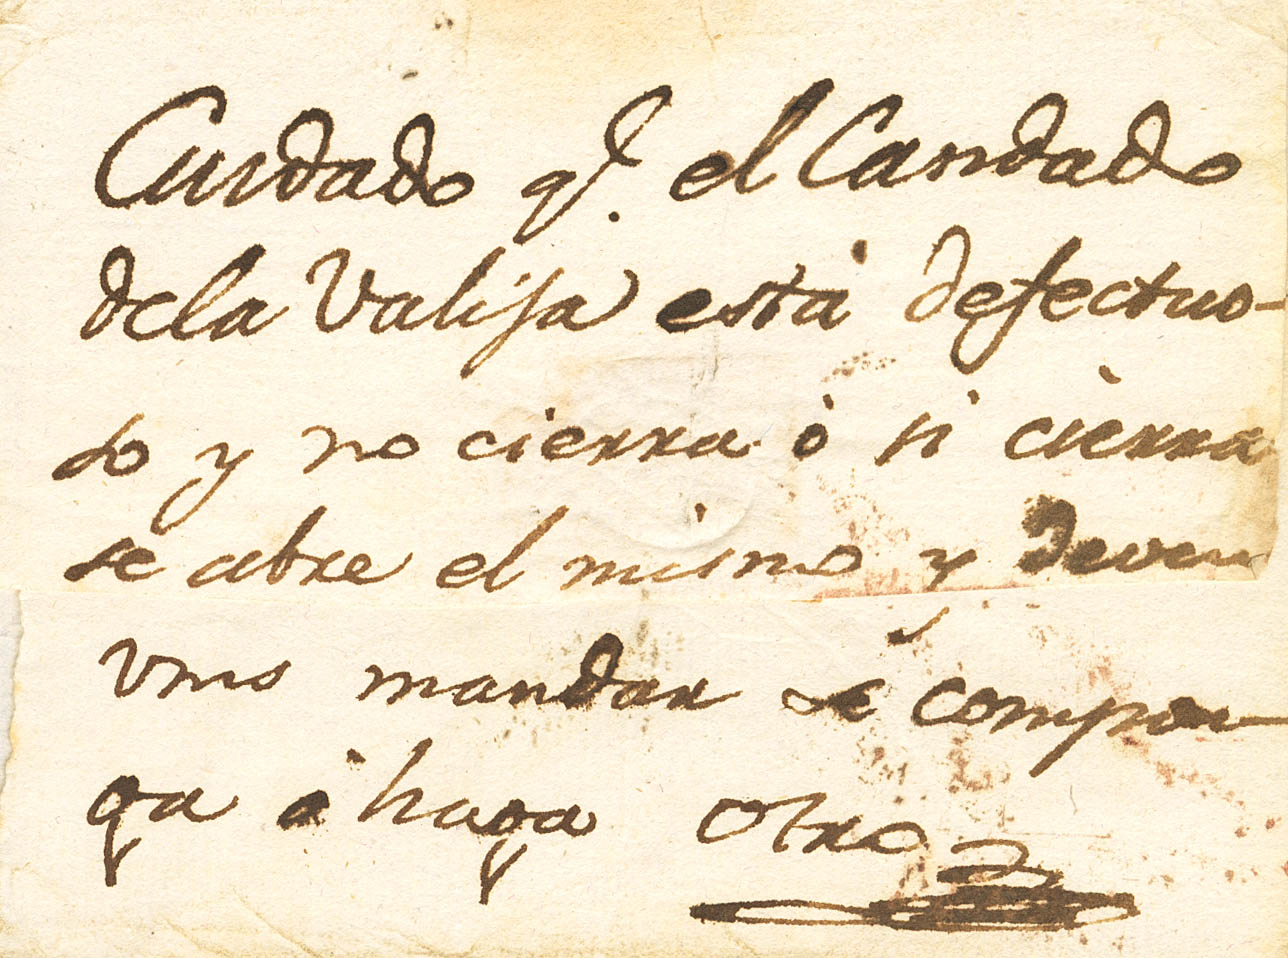 Cuidado q.e el Candado
dela Valija está defectuo-
so y no cierra ò si cierra
se abre el mismo y deven
Vms mandar se compon-
ga ò haga otro